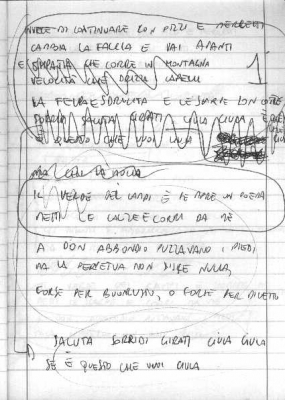 INVECE DI CONTINUARE CON PIZZI E MERLETTI
CAMBIA LA FACCIA E VAI AVANTI
E CHE CORRE IN MONTAGNA
VELOCITÀ CHE CAPELLI
1
LA E LE
SORRIDI SALUTA GIRATI CIULA CIULA
È QUESTO CHE VUOI CIULA
MA COSÌ LA
IL VERDE DEI CAMPI È SEMPRE UN POEMA
METTI LE CALZE E CORRI DA ME
A DON ABBONDIO PUZZAVANO I PIEDI
MA LA PERPETUA NON DISSE NULLA,
FORSE PER BUONGUSTO, O FORSE PER DILETTO
SALUTA SORRIDI GIRATI CIULA CIULA
SE È QUESTO CHE VUOI CIULA